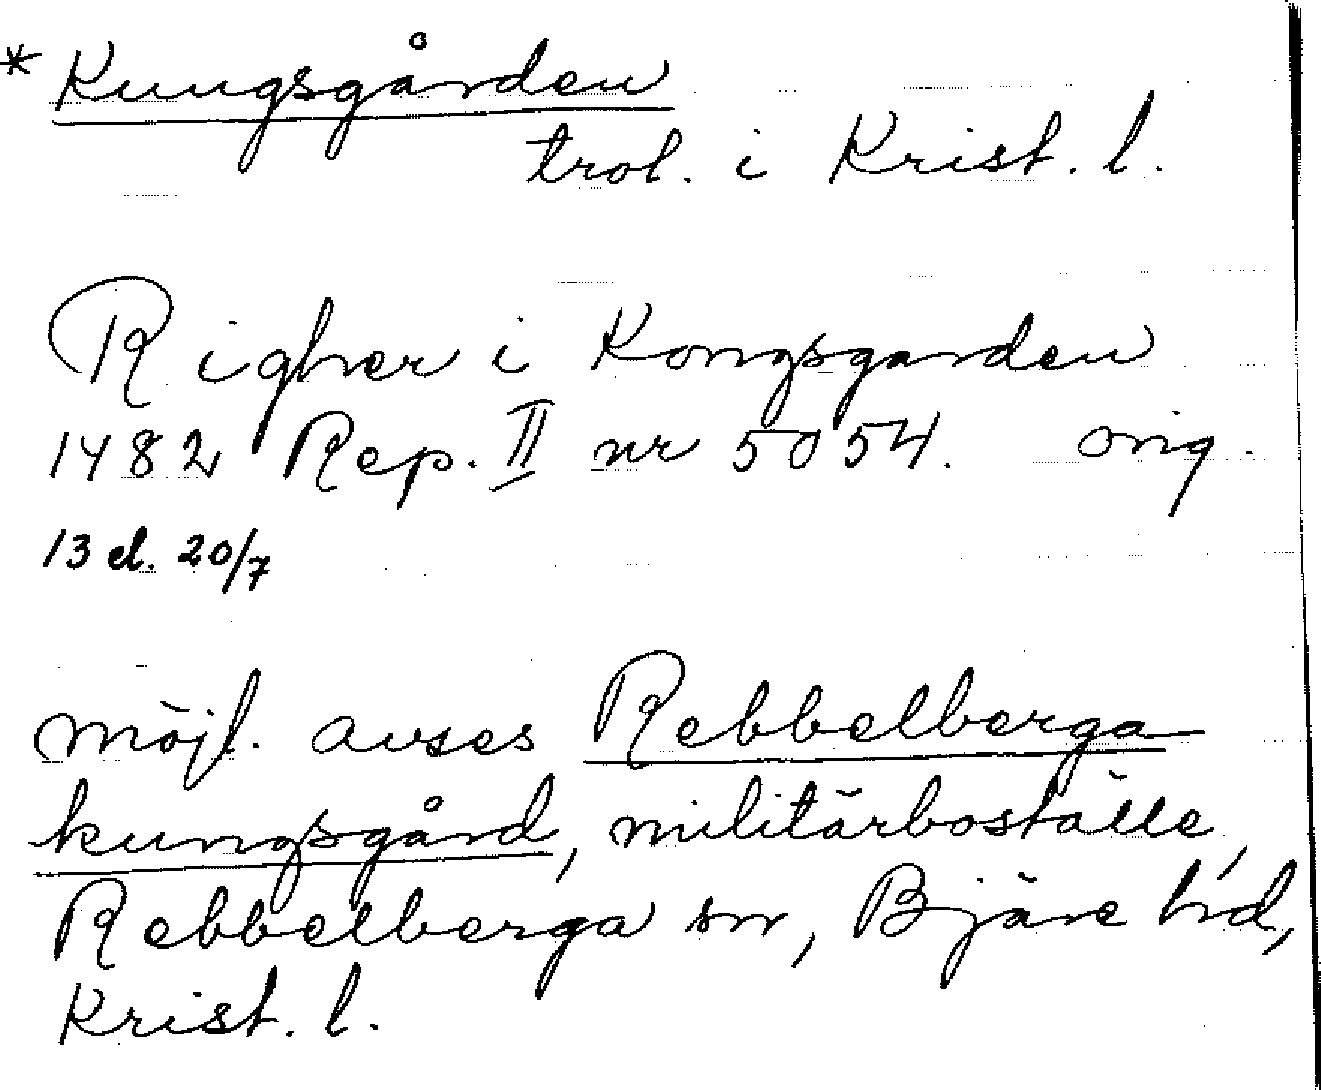 * Kungsgården
trol. i Krist. l.
Righer i Kongsgarden
1482 Rep. II nr 5054. orig.
13 el. 20/7
möjl. avses Rebbelberga
kungsgård, militärboställe,
Rebbelberga sn, Bjäre hd,
Krist. l.